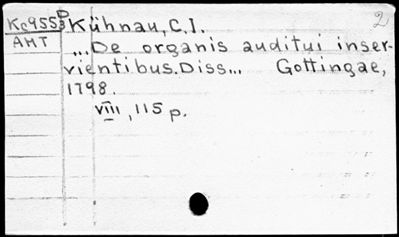 Kc955D Kühnau, C.I. 2
AHT
...De organis auditui inser-
vientibus. Diss... Gottingae,
1798.
VIII, 115 p.